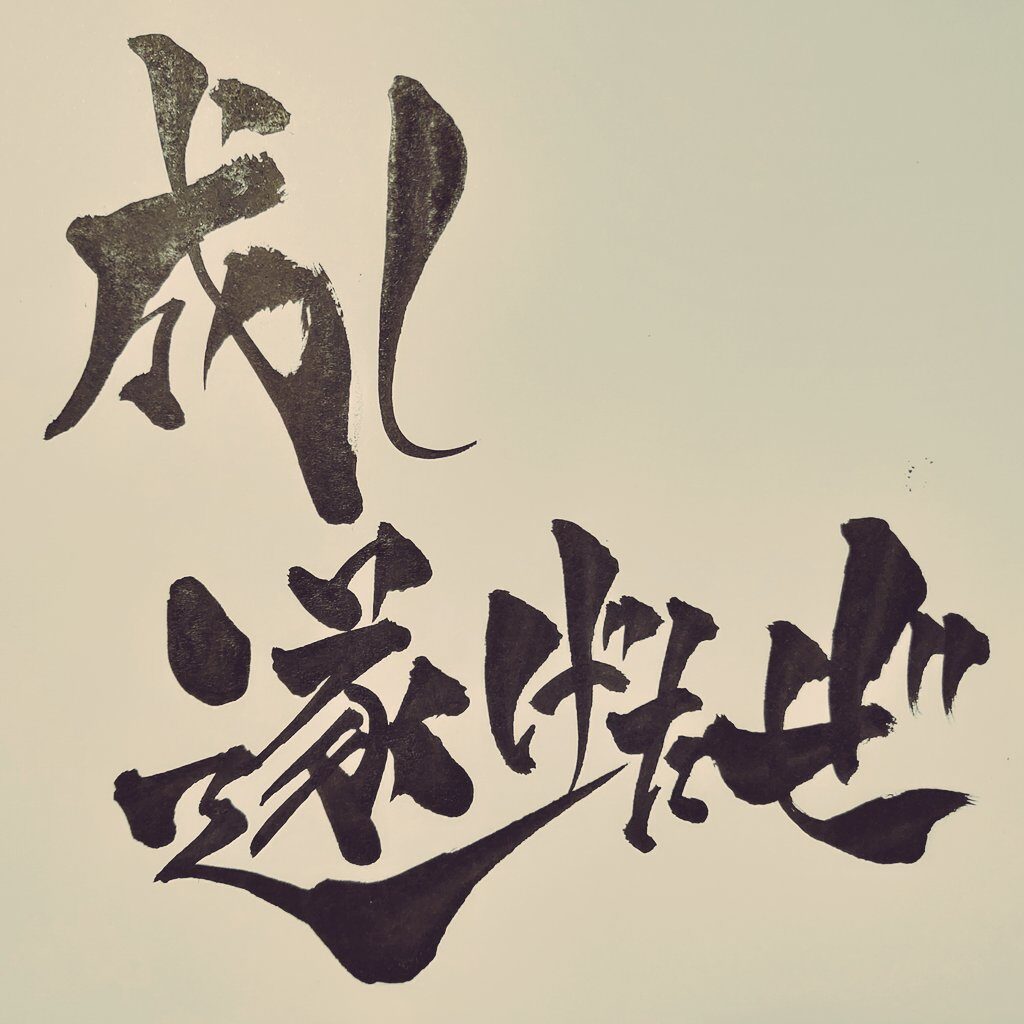 成し
遂げたぜ